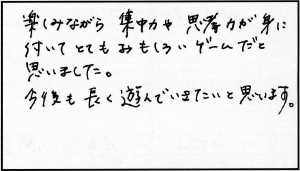 楽しみながら 集中力や 思考力が身に
付いてとてもおもしろいゲームだと
思いました。
今後も長く遊んでいきたいと思います。